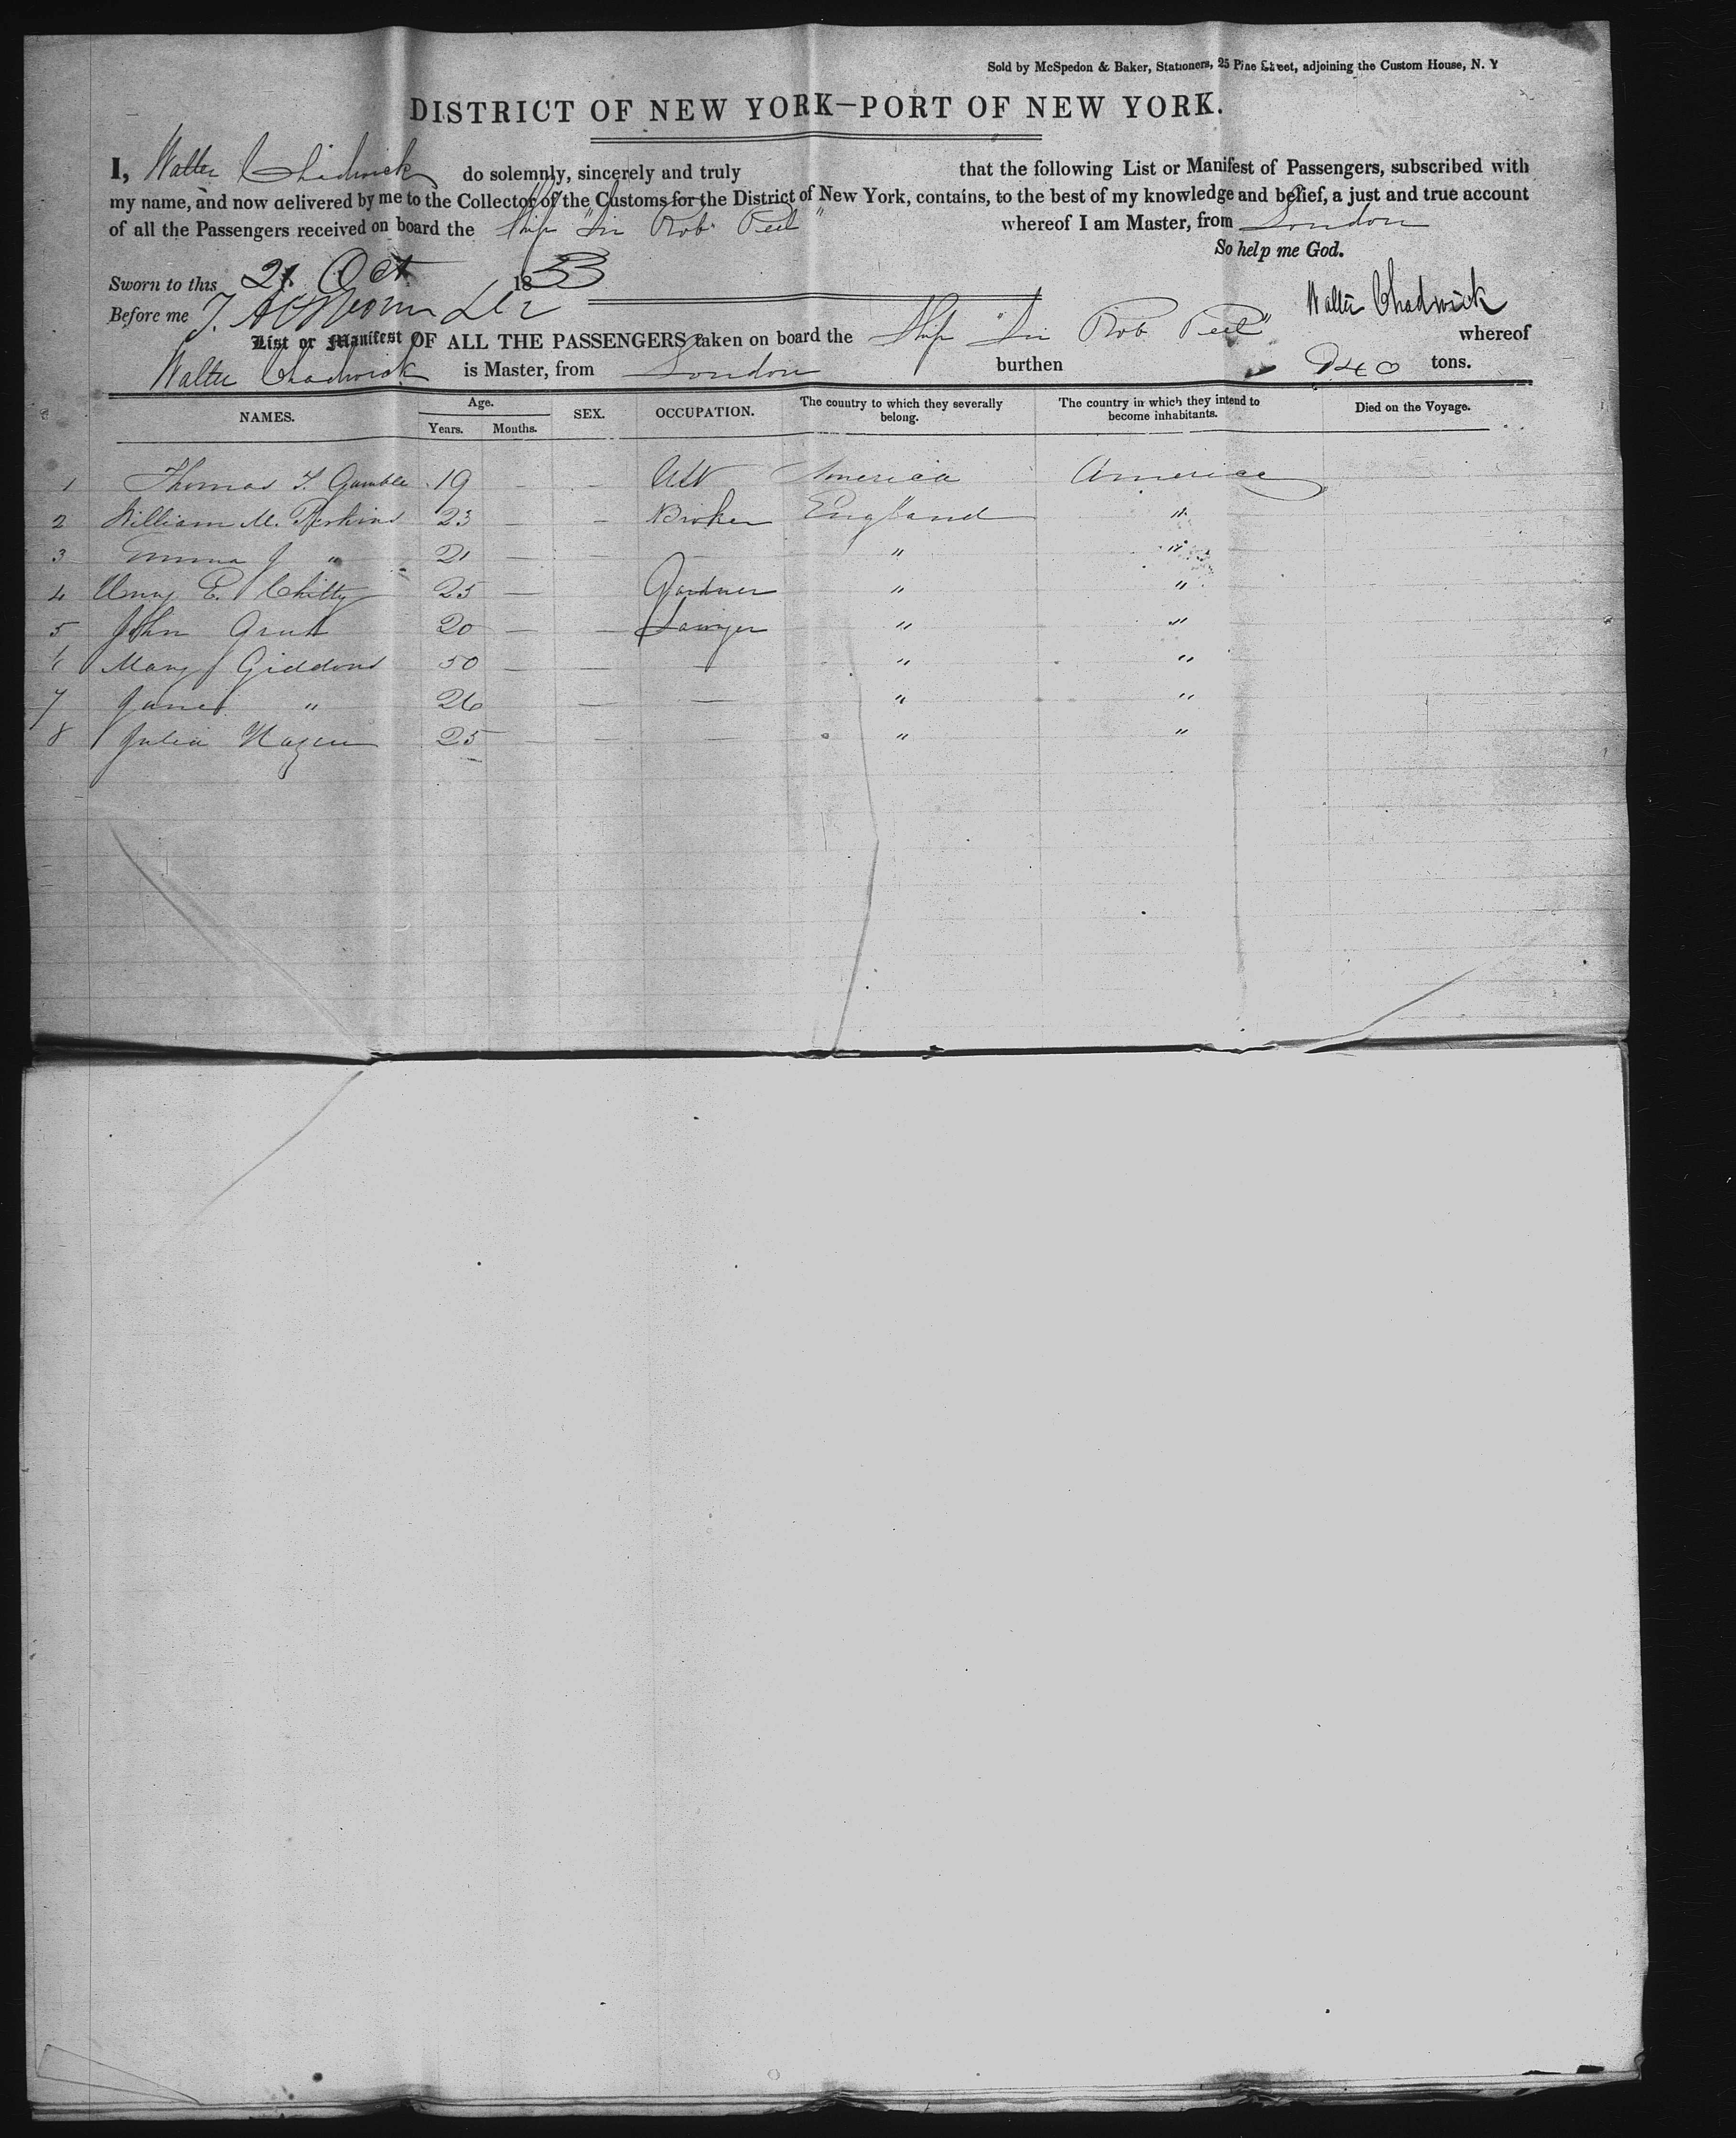 Sold by McSpedon & Baker, Stationers, 25 Pine Street, adjoining the Custom House, N. Y
DISTRICT OF NEW YORK—PORT OF NEW YORK.
I, Walter Chadwick do solemnly, sincerely and truly that the following List or Manifest of Passengers, subscribed with
my name, and now delivered by me to the Collector of the Customs for the District of New York, contains, to the best of my knowledge and belief, a just and true account
of all the Passengers received on board the Ship "Sir Rob Peel" whereof I am Master, from London
So help me God.
Sworn to this 21 Oct 1853
Walter Chadwick
Before me
List or Manifest OF ALL THE PASSENGERS taken on board the Ship "Sir Rob Peel" whereof
Walter Chadwick is Master, from London burthen 940 tons.
NAMES. Age. Years. Months. SEX. OCCUPATION. The country to which they severally belong. The country in which they intend to become inhabitants. Died on the Voyage.
1 Thomas F. Gamble 19 — — America America
2 William M. Perkins 23 — — Broker England "
3 Emma J " 21 — — — " "
4 Henry E. Chitty 25 — Gardner " "
5 John 20 — — Sawyer " "
6 Mary Giddons 50 — — — " "
7 James " 26 — — " "
8 Julia Hazen 25 — — — " "